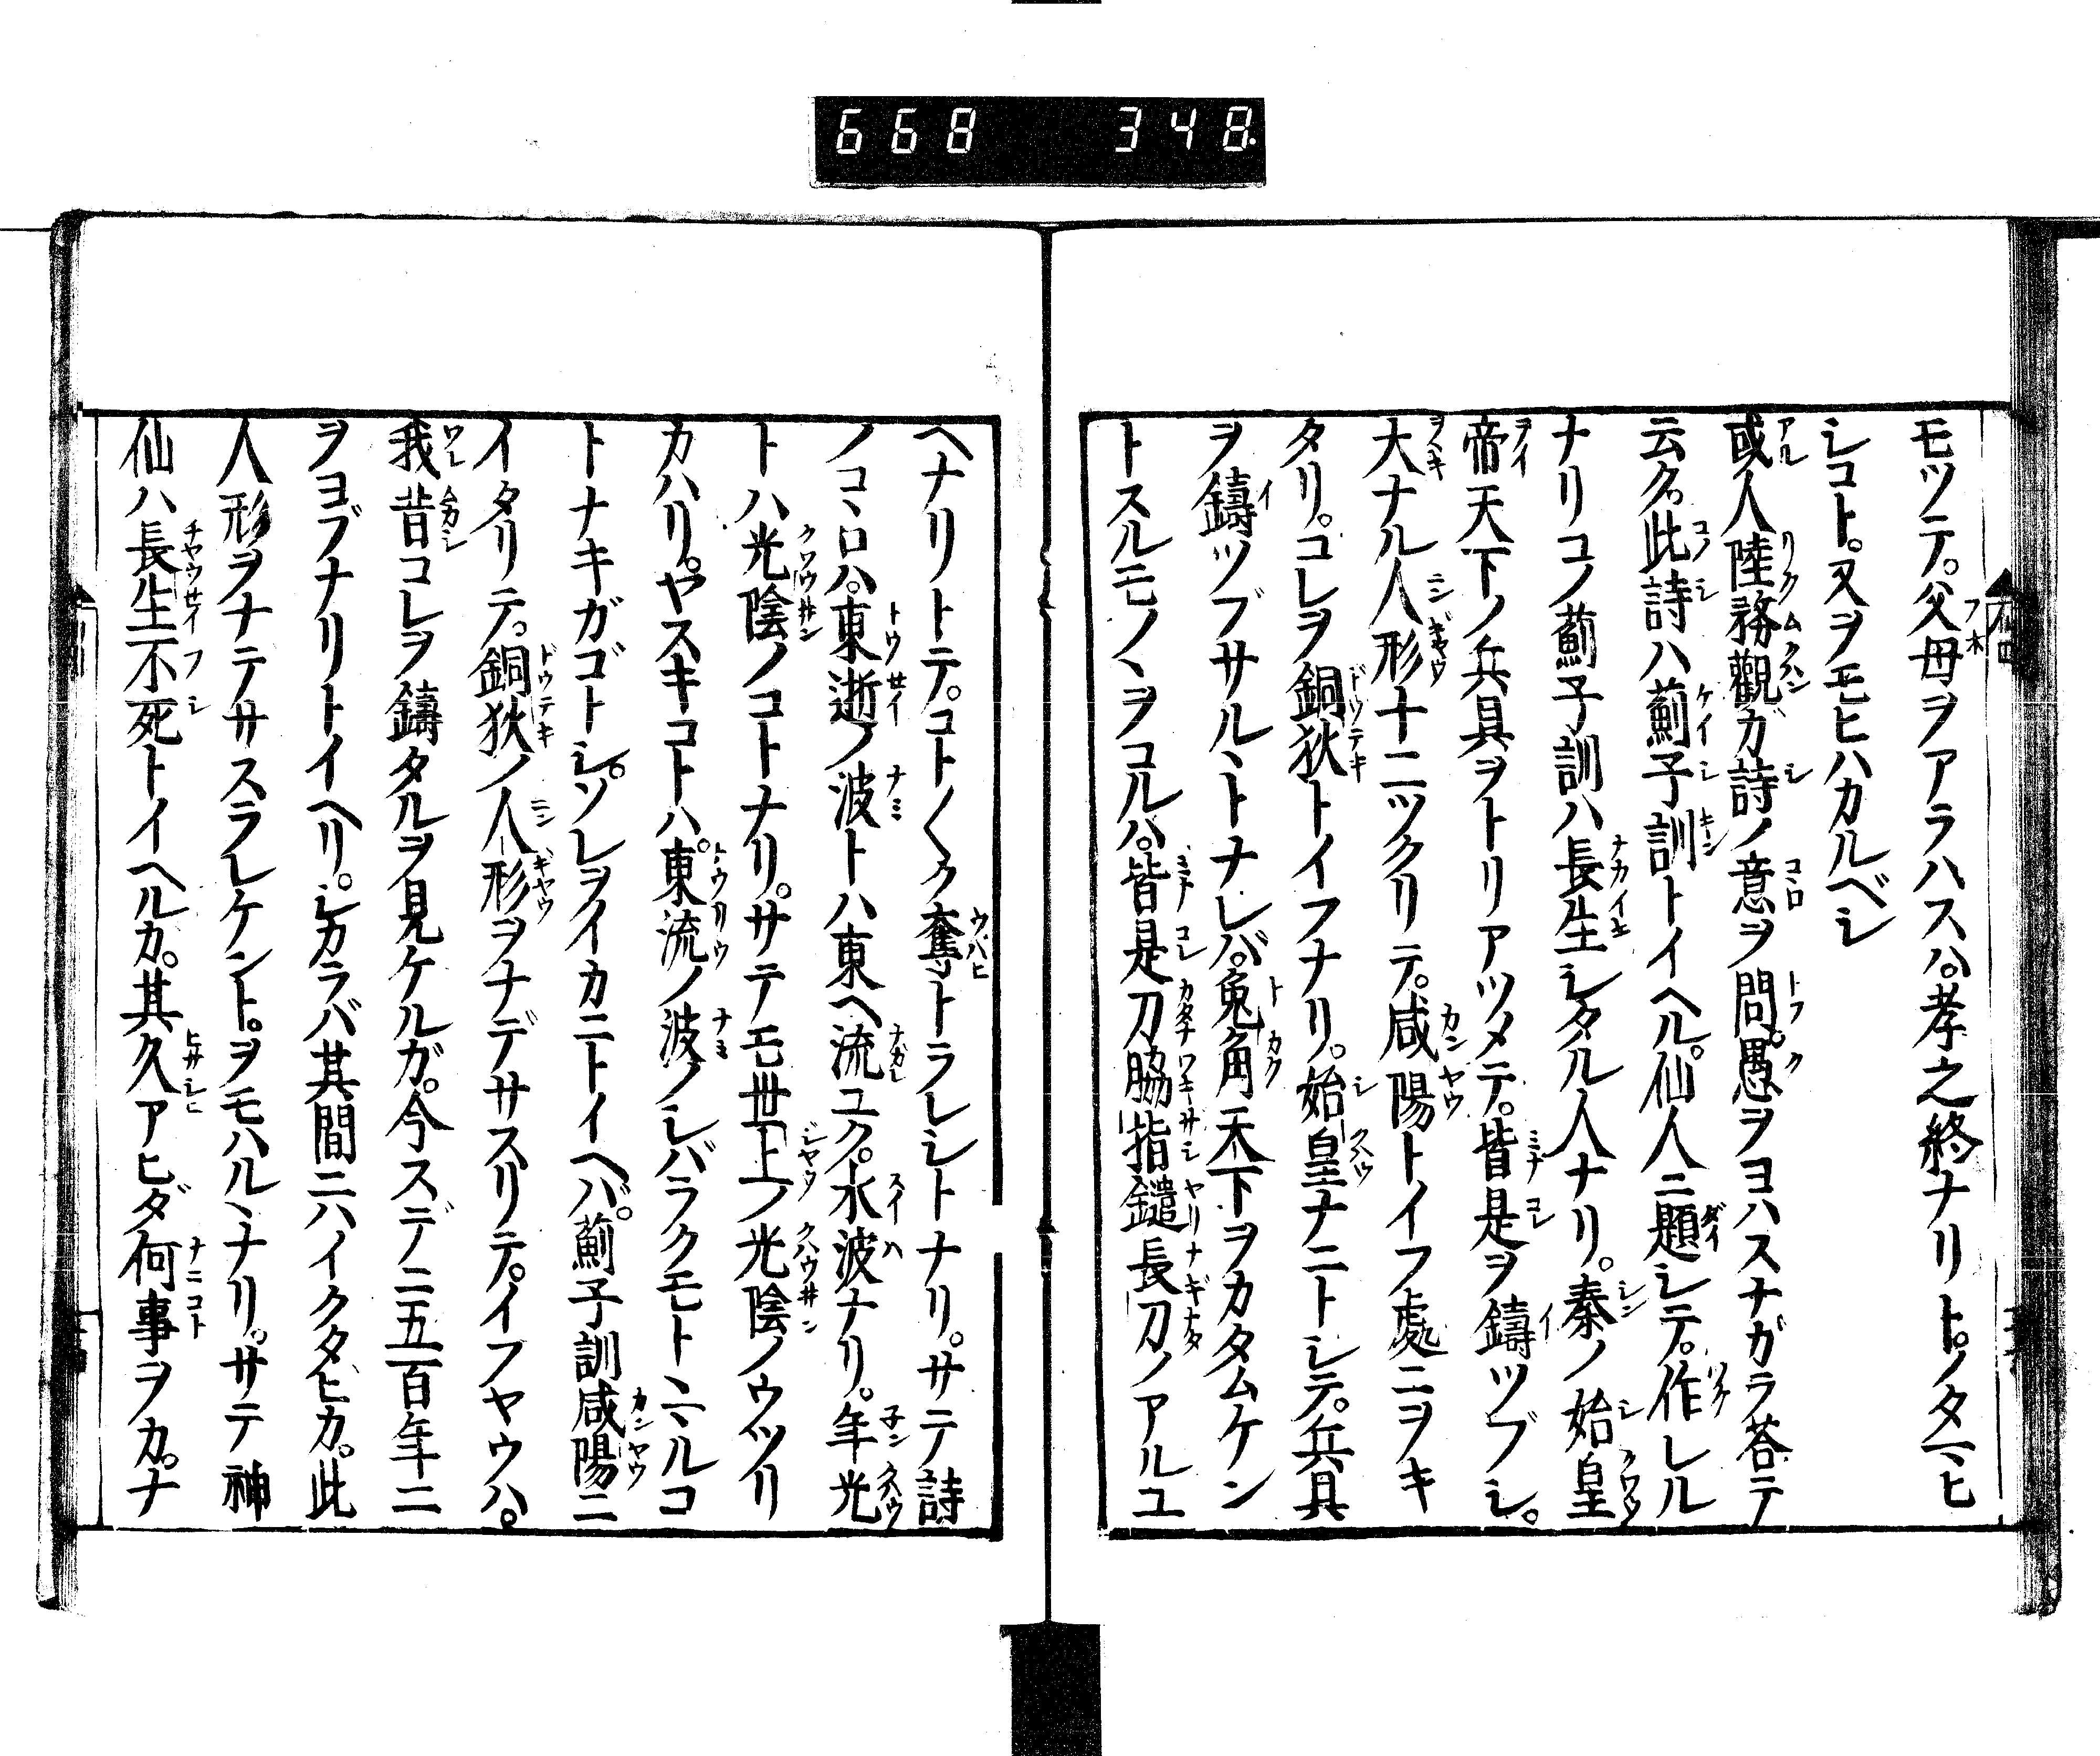 668 348.
モツテ。父母ヲアラハスハ。孝之終ナリト。ノタマヒ
シコト。又ヲモヒハカルベシ
或人陸務觀ガ詩ノ意ヲ問。愚ヲヨハスナガラ荅テ
云ク。此詩ハ薊子訓トイヘル。仙人ニ題シテ。作レル
ナリコノ薊子訓ハ長生シタル人ナリ。秦ノ始皇
帝天下ノ兵具ヲトリアツメテ。皆是ヲ鑄ツブシ。
大ナル人形十二ツクリテ。咸陽トイフ處ニヲキ
タリ。コレヲ銅狄トイフナリ。始皇ナニトシテ。兵具
ヲ鑄ツブサルヽトナレバ。兎角天下ヲカタムケン
トスルモノヽヲコルハ。皆是刀脇指鑓長刀ノアルユ
ヘナリトテ。コト〱ク奪トラレシトナリ。サテ詩
ノコヽロハ。東逝ノ波トハ東ヘ流ユク。水波ナリ。年光
トハ光陰ノコトナリ。サテモ世上ノ光陰ノウツリ
カハリ。ヤスキコトハ。東流ノ波ノシバラクモトヾマルコ
トナキガゴトシ。ソレヲイカニトイヘバ。薊子訓咸陽ニ
イタリテ。銅狄ノ人形ヲナデサスリテ。イフヤウハ。
我昔コレヲ鑄タルヲ見ケルガ。今スデノニ五百年ニ
ヲヨブナリトイヘリ。シカラバ其間ニハイクタビカ。此
人形ヲナテサスラレケント。ヲモハルヽナリ。サテ神
仙ハ長生不死トイヘルカ。其久アヒダ何事ヲカ。ナ